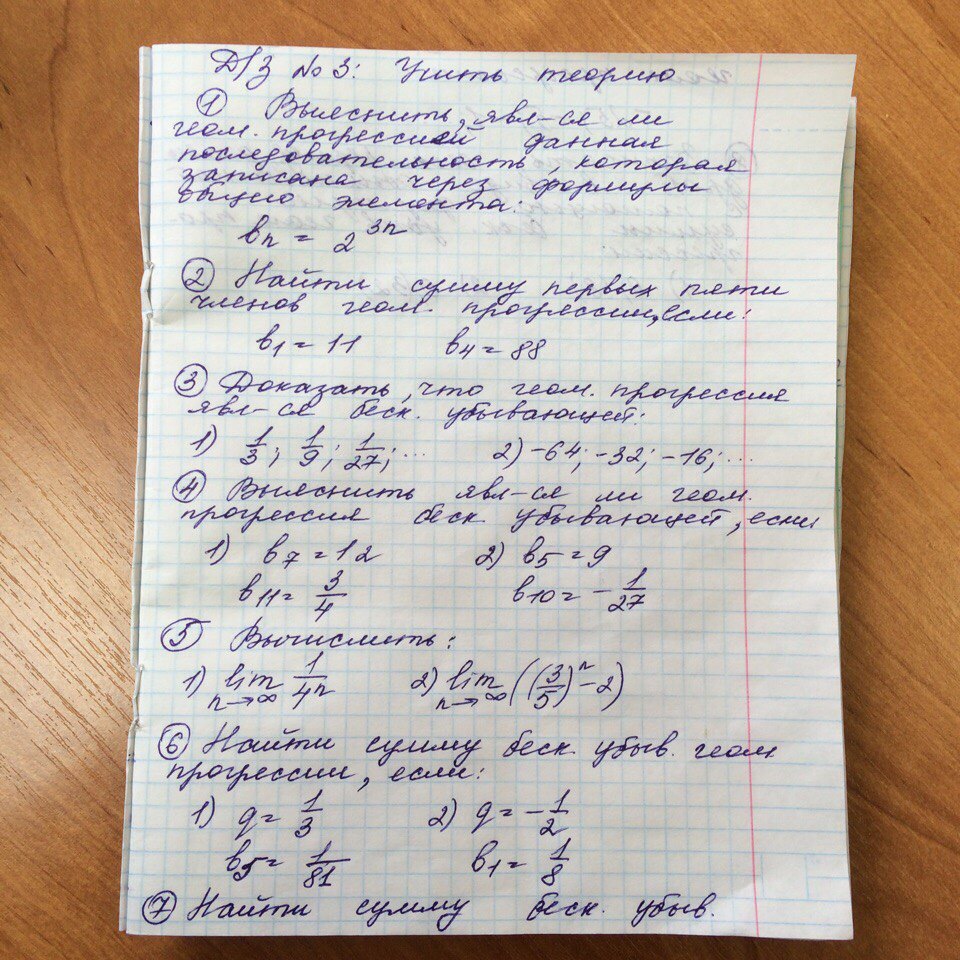 Д/З № 3: Учить теорию
① Выяснить, явл-ся ли
геом. прогрессией данная
последовательность, которая
записана через формулы
общего элемента:
bn = 2^3n
② Найти сумму первых пяти
членов геом. прогрессии, если:
b1 = 11 b4 = 88
③ Доказать, что геом. прогрессия
явл-ся беск. убывающей:
1) 1/3; 1/9; 1/27; ... 2) -64; -32; -16; ...
④ Выяснить явл-ся ли геом.
прогрессия беск. убывающей, если:
1) b7 = 12 2) b5 = 9
b11 = 3/4 b10 = -1/27
⑤ Вычислить:
1) lim n→∞ 1/4^n 2) lim n→∞ ((3/5)^n - 2)
⑥ Найти сумму беск. убыв. геом
прогрессии, если:
1) q = 1/3 2) q = -1/2
b5 = 1/81 b1 = 1/8
⑦ Найти сумму беск. убыв.